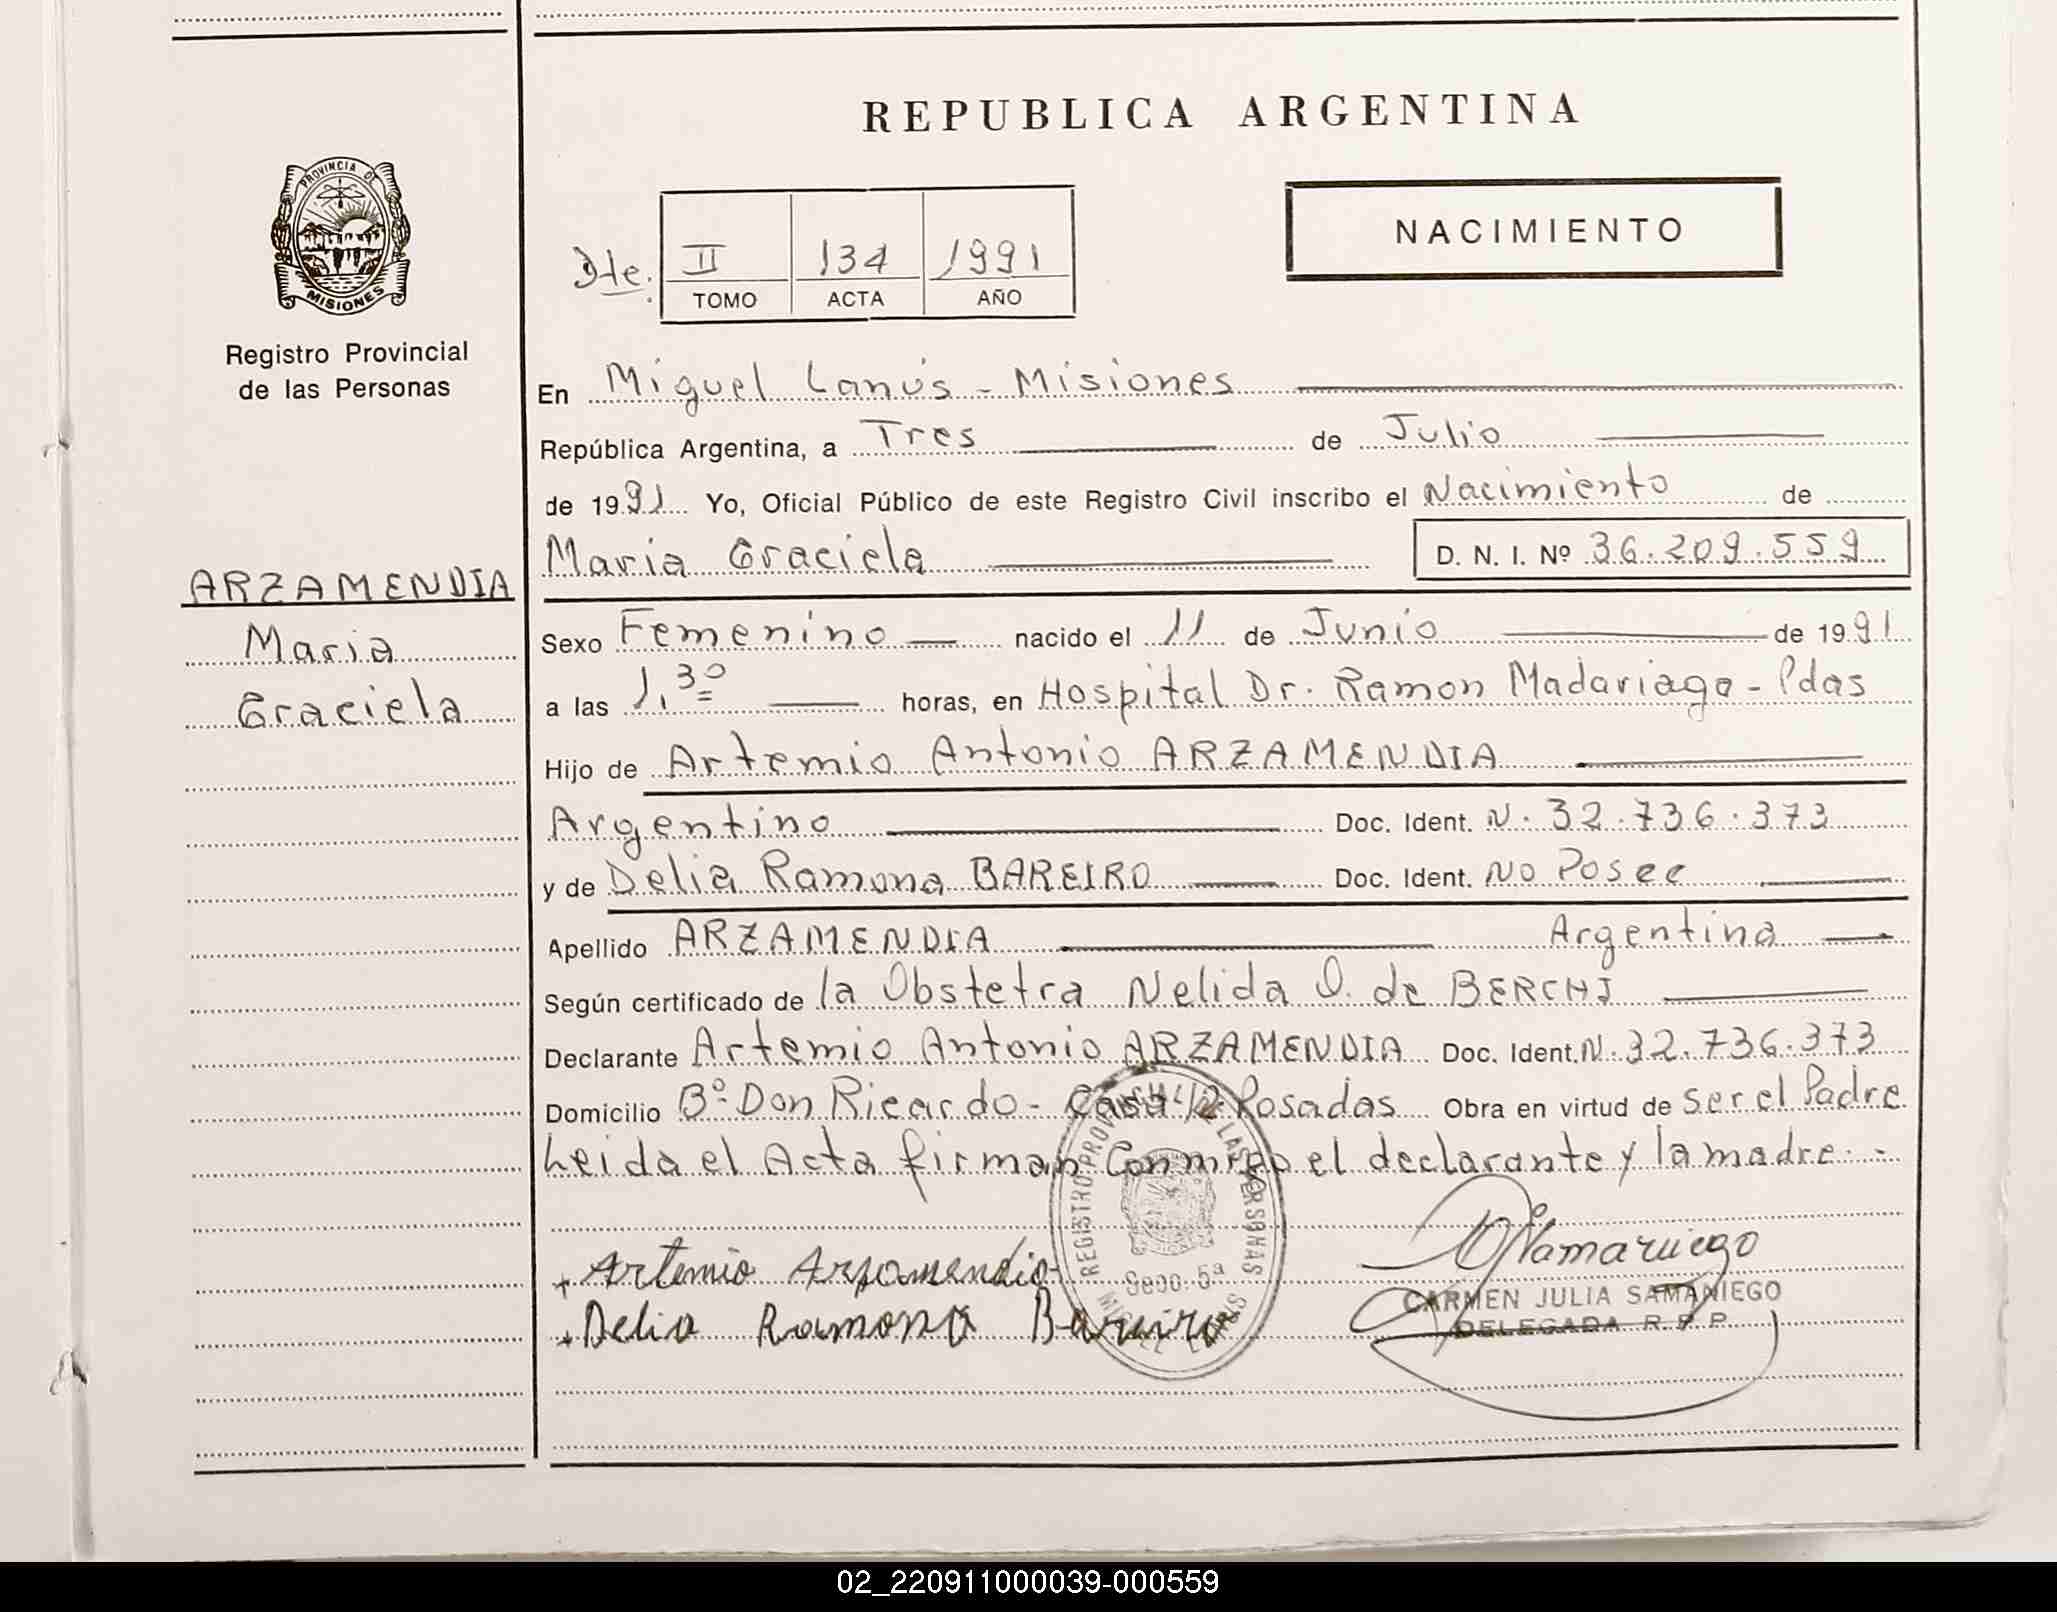 REPUBLICA ARGENTINA
PROVINCIA DE
MISIONES
Registro Provincial
de las Personas
NACIMIENTO
Dte. II 134 1991
TOMO ACTA AÑO
En Miguel Lanús - Misiones
República Argentina, a Tres de Julio
de 1991 Yo, Oficial Público de este Registro Civil inscribo el Nacimiento de
Maria Graciela D. N. I. Nº 36.209.559
ARZAMENDIA
Maria
Graciela
Sexo Femenino nacido el 11 de Junio de 1991
a las 1,30 horas, en Hospital Dr. Ramon Madariaga - Pdas
Hijo de Artemio Antonio ARZAMENDIA
Argentino Doc. Ident. N. 32.736.373
y de Delia Ramona BAREIRO Doc. Ident. No Posee
Apellido ARZAMENDIA Argentina
Según certificado de la Obstetra Nelida O. de BERCHI
Declarante Artemio Antonio ARZAMENDIA Doc. Ident. N. 32.736.373
Domicilio Bº Don Ricardo - Casa 12 Posadas Obra en virtud de Ser el Padre
Leida el Acta firman Conmigo el declarante y la madre. -
REGISTRO PROVINCIAL DE LAS PERSONAS
Secc. 5ª
MIGUEL LANUS
+ Artemio Arzamendia
+ Delia Ramona Bareiro
CARMEN JULIA SAMANIEGO
DELEGADA R. P. P.
02_220911000039-000559